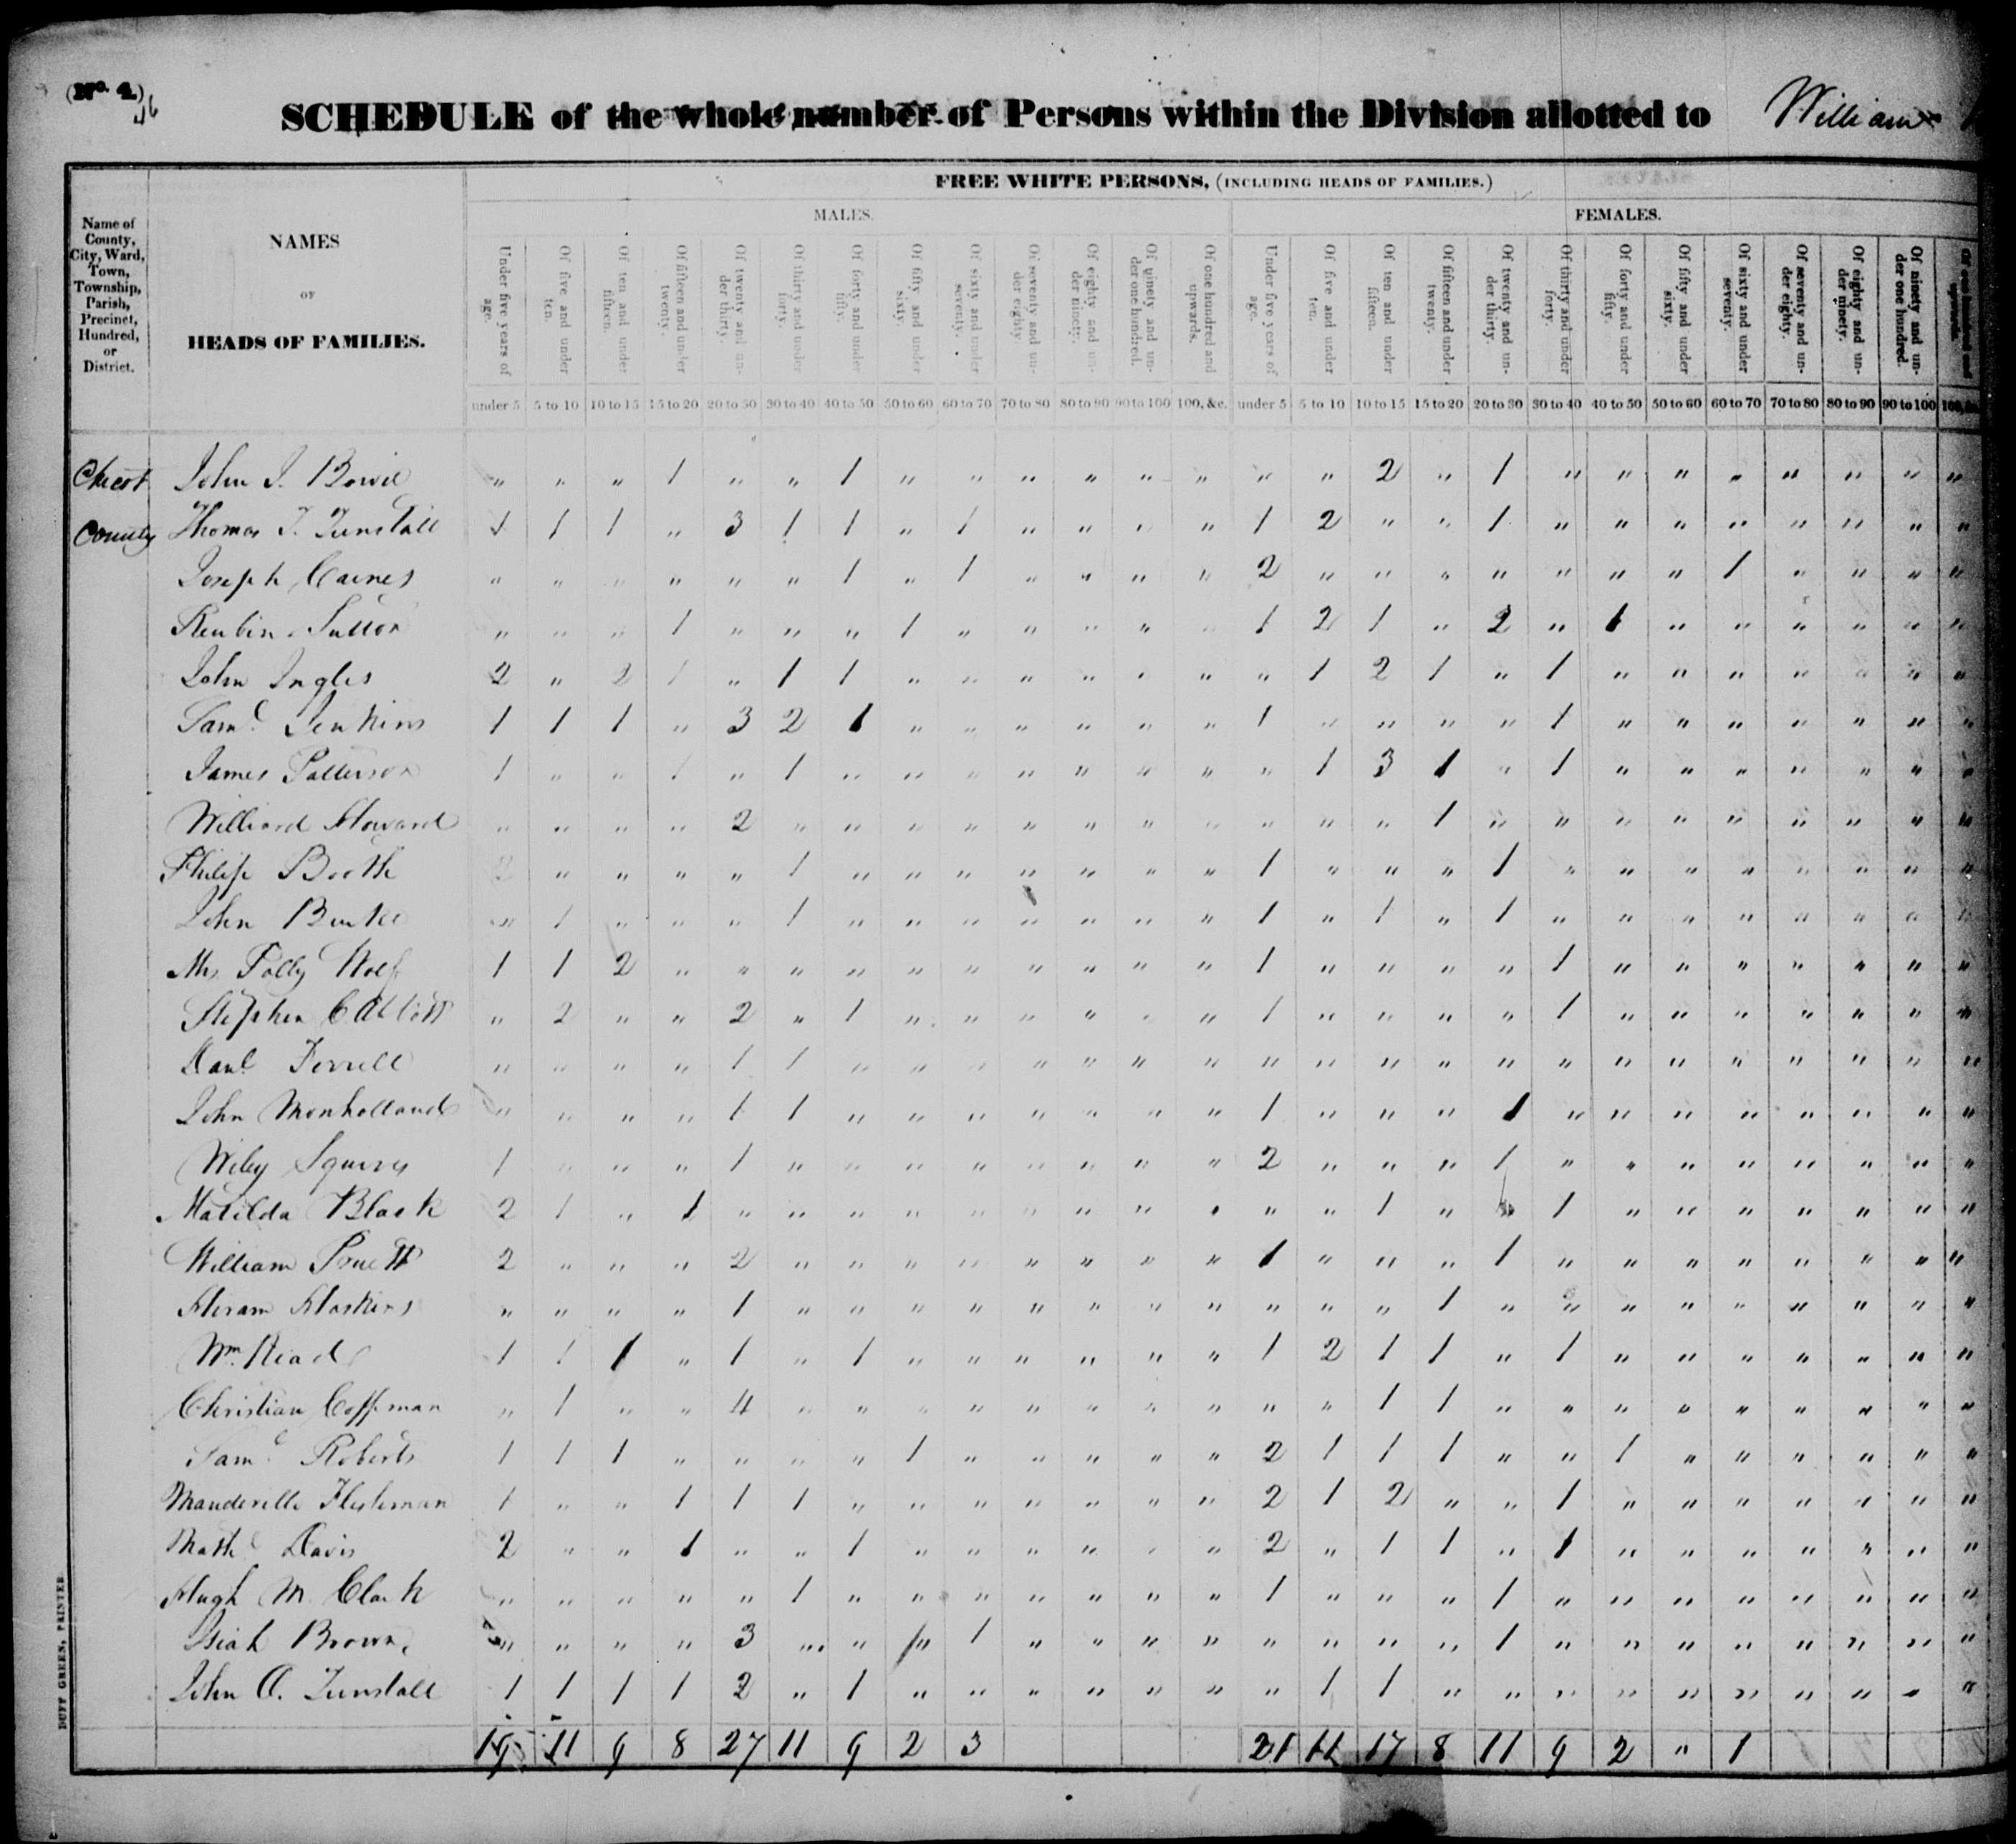 (No. 4.)
46
SCHEDULE of the whole number of Persons within the Division allotted to William
Name of County, City, Ward, Town, Township, Parish, Precinct, Hundred, or District.
NAMES OF HEADS OF FAMILIES.
FREE WHITE PERSONS, (INCLUDING HEADS OF FAMILIES.)
MALES. FEMALES.
Under five years of age. Of five and under ten. Of ten and under fifteen. Of fifteen and under twenty. Of twenty and under thirty. Of thirty and under forty. Of forty and under fifty. Of fifty and under sixty. Of sixty and under seventy. Of seventy and under eighty. Of eighty and under ninety. Of ninety and under one hundred. Of one hundred and upwards. Under five years of age. Of five and under ten. Of ten and under fifteen. Of fifteen and under twenty. Of twenty and under thirty. Of thirty and under forty. Of forty and under fifty. Of fifty and under sixty. Of sixty and under seventy. Of seventy and under eighty. Of eighty and under ninety. Of ninety and under one hundred. Of one hundred and upwards.
under 5 5 to 10 10 to 15 15 to 20 20 to 30 30 to 40 40 to 50 50 to 60 60 to 70 70 to 80 80 to 90 90 to 100 100, &c. under 5 5 to 10 10 to 15 15 to 20 20 to 30 30 to 40 40 to 50 50 to 60 60 to 70 70 to 80 80 to 90 90 to 100 100, &c.
Chicot John J. Bowie " " " 1 " " 1 " " " " " " " " 2 " 1 " " " " " " " "
County Thomas T. Tunstall 1 1 1 " 3 1 1 " 1 " " " " 1 2 " " 1 " " " " " " " "
Joseph Caines " " " " " " 1 " 1 " " " " 2 " " " " " " " 1 " " " "
Reubin Sutton " " " 1 " " " 1 " " " " " 1 2 1 " 2 " 1 " " " " " "
John Ingles 2 " 2 1 " 1 1 " " " " " " " 1 2 1 " 1 " " " " " " "
Saml Jenkins 1 1 1 " 3 2 1 " " " " " " 1 " " " " 1 " " " " " " "
James Patterson 1 " " 1 " 1 " " " " " " " " 1 3 1 " 1 " " " " " " "
Williard Howard " " " " 2 " " " " " " " " " " " 1 " " " " " " " " "
Philip Booth 2 " " " " 1 " " " " " " " 1 " " " 1 " " " " " " " "
John Burke " 1 " " " 1 " " " " " " " 1 " 1 " 1 " " " " " " " "
Mrs Polly Wolf 1 1 2 " " " " " " " " " " 1 " " " " 1 " " " " " " "
Stephen C Abbott " 2 " " 2 " 1 " " " " " " 1 " " " " 1 " " " " " " "
Danl Ferrell " " " " 1 1 " " " " " " " " " " " " " " " " " " " "
John Monholland " " " " 1 1 " " " " " " " 1 " " " 1 " " " " " " " "
Wiley Squires 1 " " " 1 " " " " " " " " 2 " " " 1 " " " " " " " "
Matilda Black 2 1 " 1 " " " " " " " " " " " 1 " " 1 " " " " " " "
William Pruett 2 " " " 2 " " " " " " " " 1 " " " 1 " " " " " " " "
Hiram Hoskins " " " " 1 " " " " " " " " " " " 1 " " " " " " " " "
Wm. Read 1 1 1 " 1 " 1 " " " " " " 1 2 1 1 " 1 " " " " " " "
Christian Coffman " 1 " " 4 " " " " " " " " " " 1 1 " " " " " " " " "
Saml Roberts 1 1 1 " " " " 1 " " " " " 2 1 1 1 " " 1 " " " " " "
Manderville 1 " " 1 1 1 " " " " " " " 2 1 2 " " 1 " " " " " " "
Math Davis 2 " " 1 " " 1 " " " " " " 2 " 1 1 " 1 " " " " " " "
Hugh M. Clark " " " " " 1 " " " " " " " 1 " " " 1 " " " " " " " "
Isiah Brown " " " " 3 " " " 1 " " " " " " " " 1 " " " " " " " "
John O. Tunstall 1 1 1 1 2 " 1 " " " " " " " 1 1 " " " " " " " " " "
19 11 9 8 27 11 9 2 3 21 11 17 8 11 9 2 " 1
DUFF GREEN, PRINTER